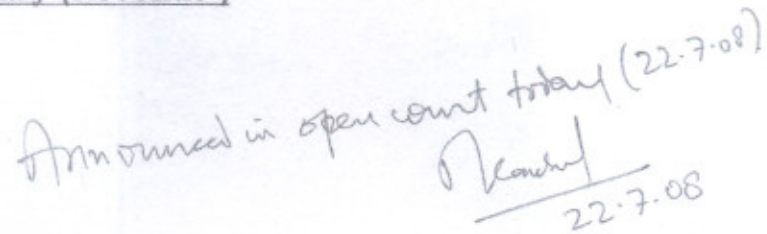 Announced in open court today (22.7.08)
22.7.08